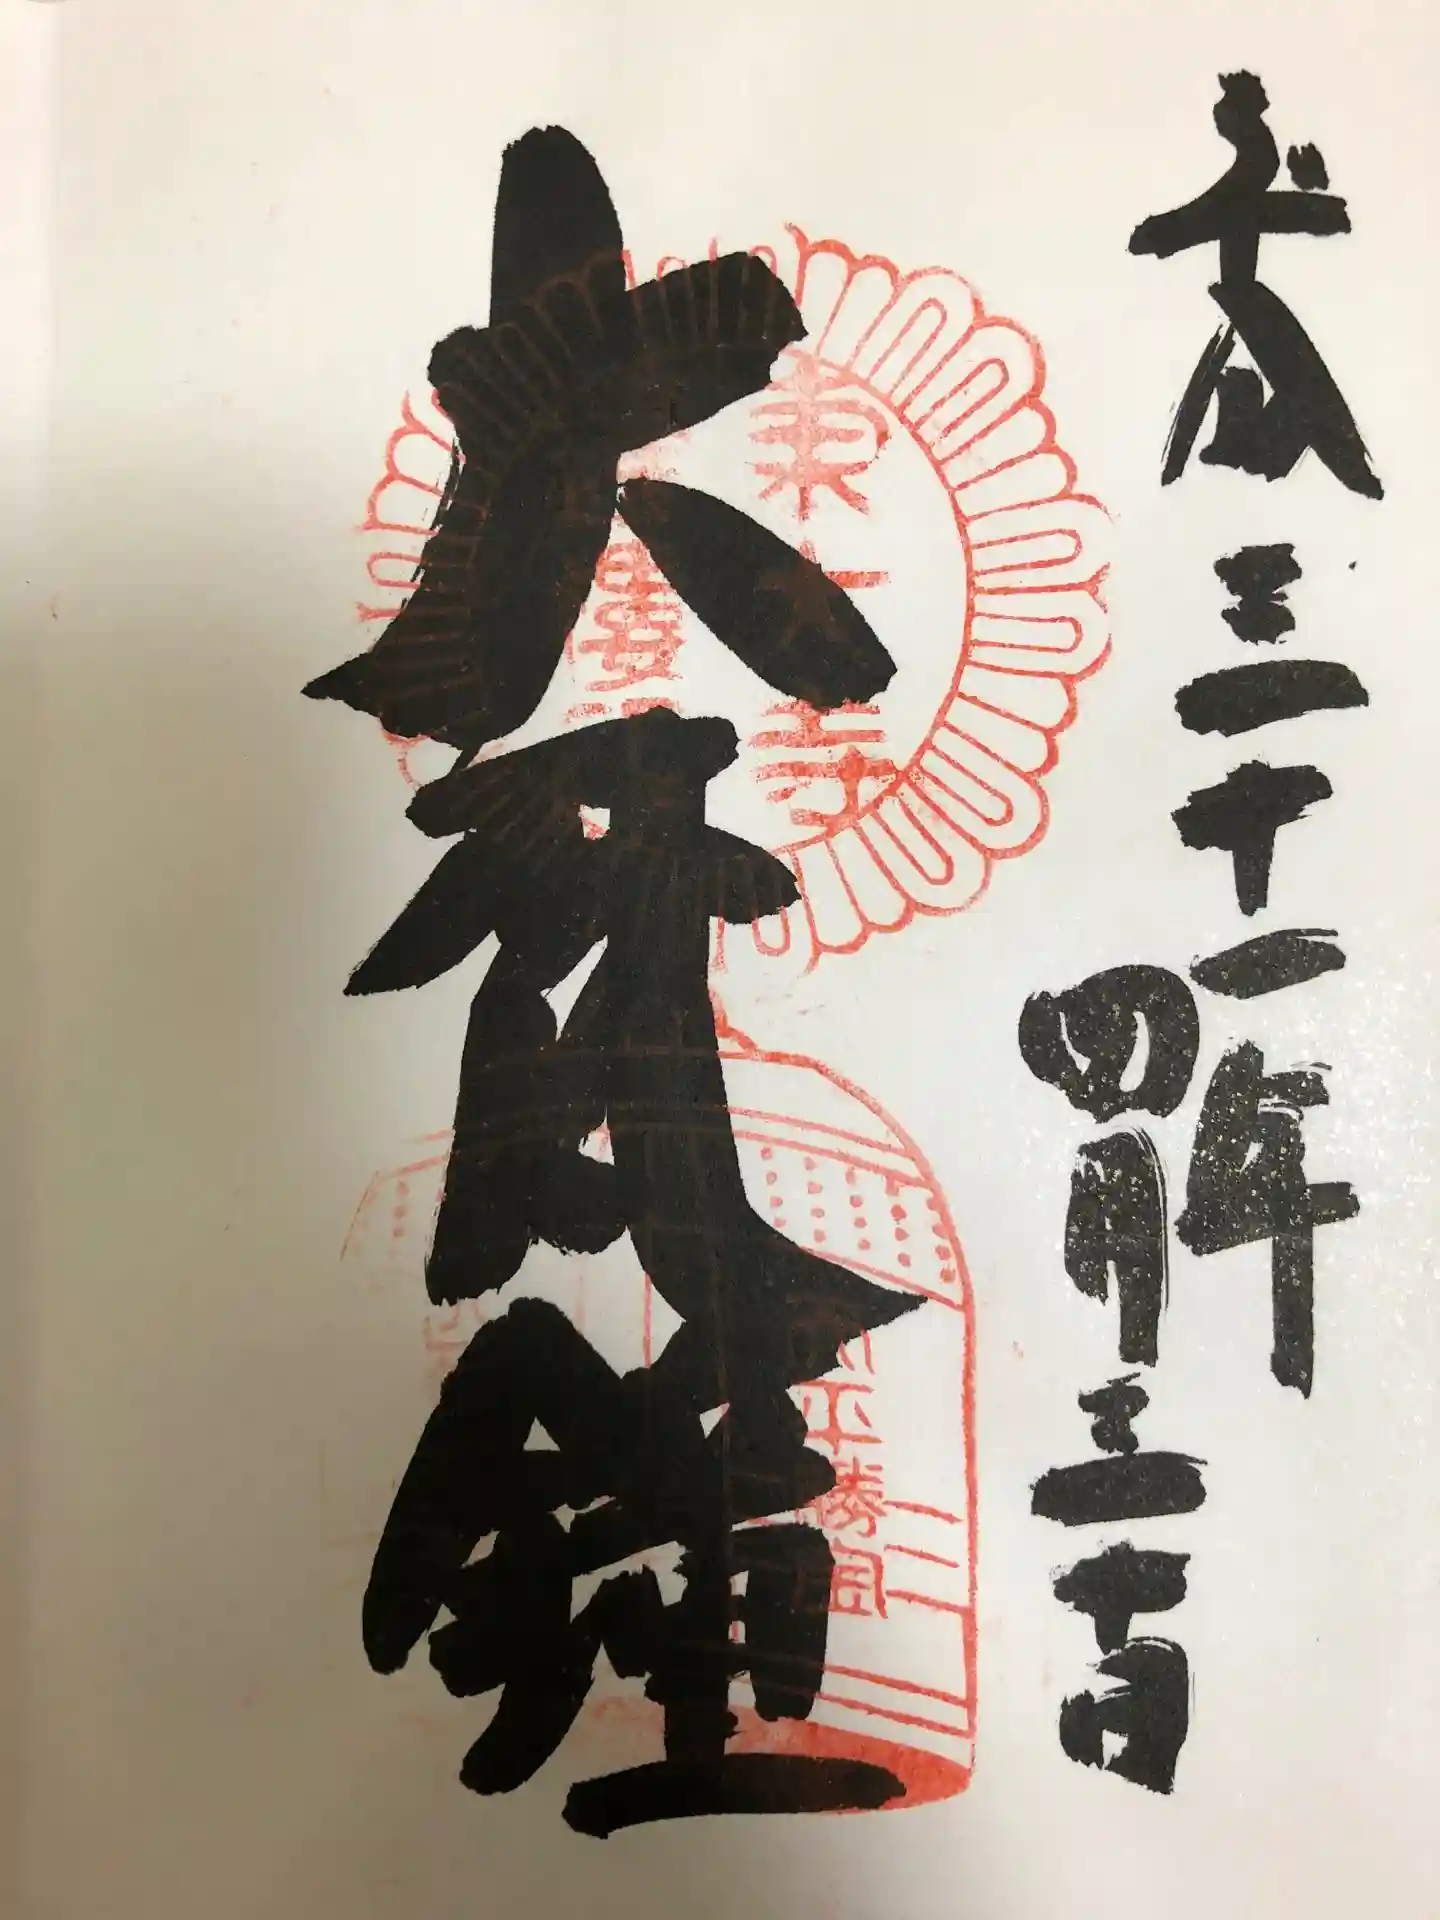 平成三十一年
四月三十日
大梵鐘
東大寺
平勝寶